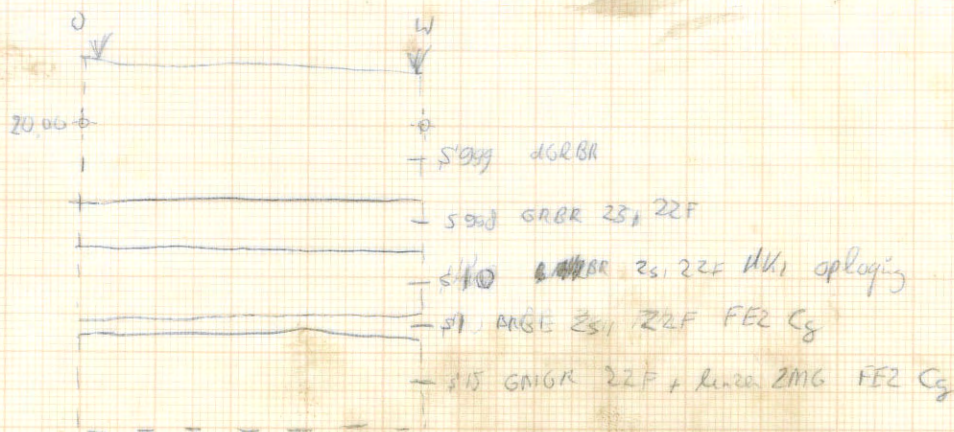 O W
20,00
S999 dGRBR
S998 GRBR ZS1 ZZF
S10 ZS1 ZZF HK1 oplaging
S1 BRBE ZS1 ZZF FE2 Cg
S15 GNGR ZZF + lenzen ZMG FE2 Cg